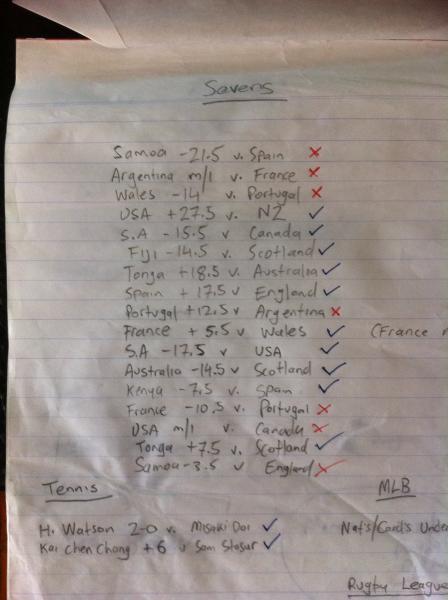 Sevens
Samoa -21.5 v. Spain ✗
Argentina m/l v. France ✗
Wales -14 v. Portugal ✗
USA +27.5 v. NZ ✓
S.A -15.5 v Canada ✓
Fiji -14.5 v. Scotland ✓
Tonga +18.5 v. Australia ✓
Spain + 17.5 v England ✓
Portugal +12.5 v Argentina ✗
France + 5.5 v Wales ✓ (France
S.A -17.5 v USA ✓
Australia -14.5 v Scotland ✓
Kenya -7.5 v. Spain ✓
France -10.5 v. Portugal ✗
USA m/l v. Canada ✗
Tonga +7.5 v. Scotland ✓
Samoa -3.5 v England ✗
Tennis
MLB
H. Watson 2-0 v. Misaki Doi ✓
Nat's/Card's Unde
Kai Chen Chang +6 v Sam Stosur ✓
Rugby League